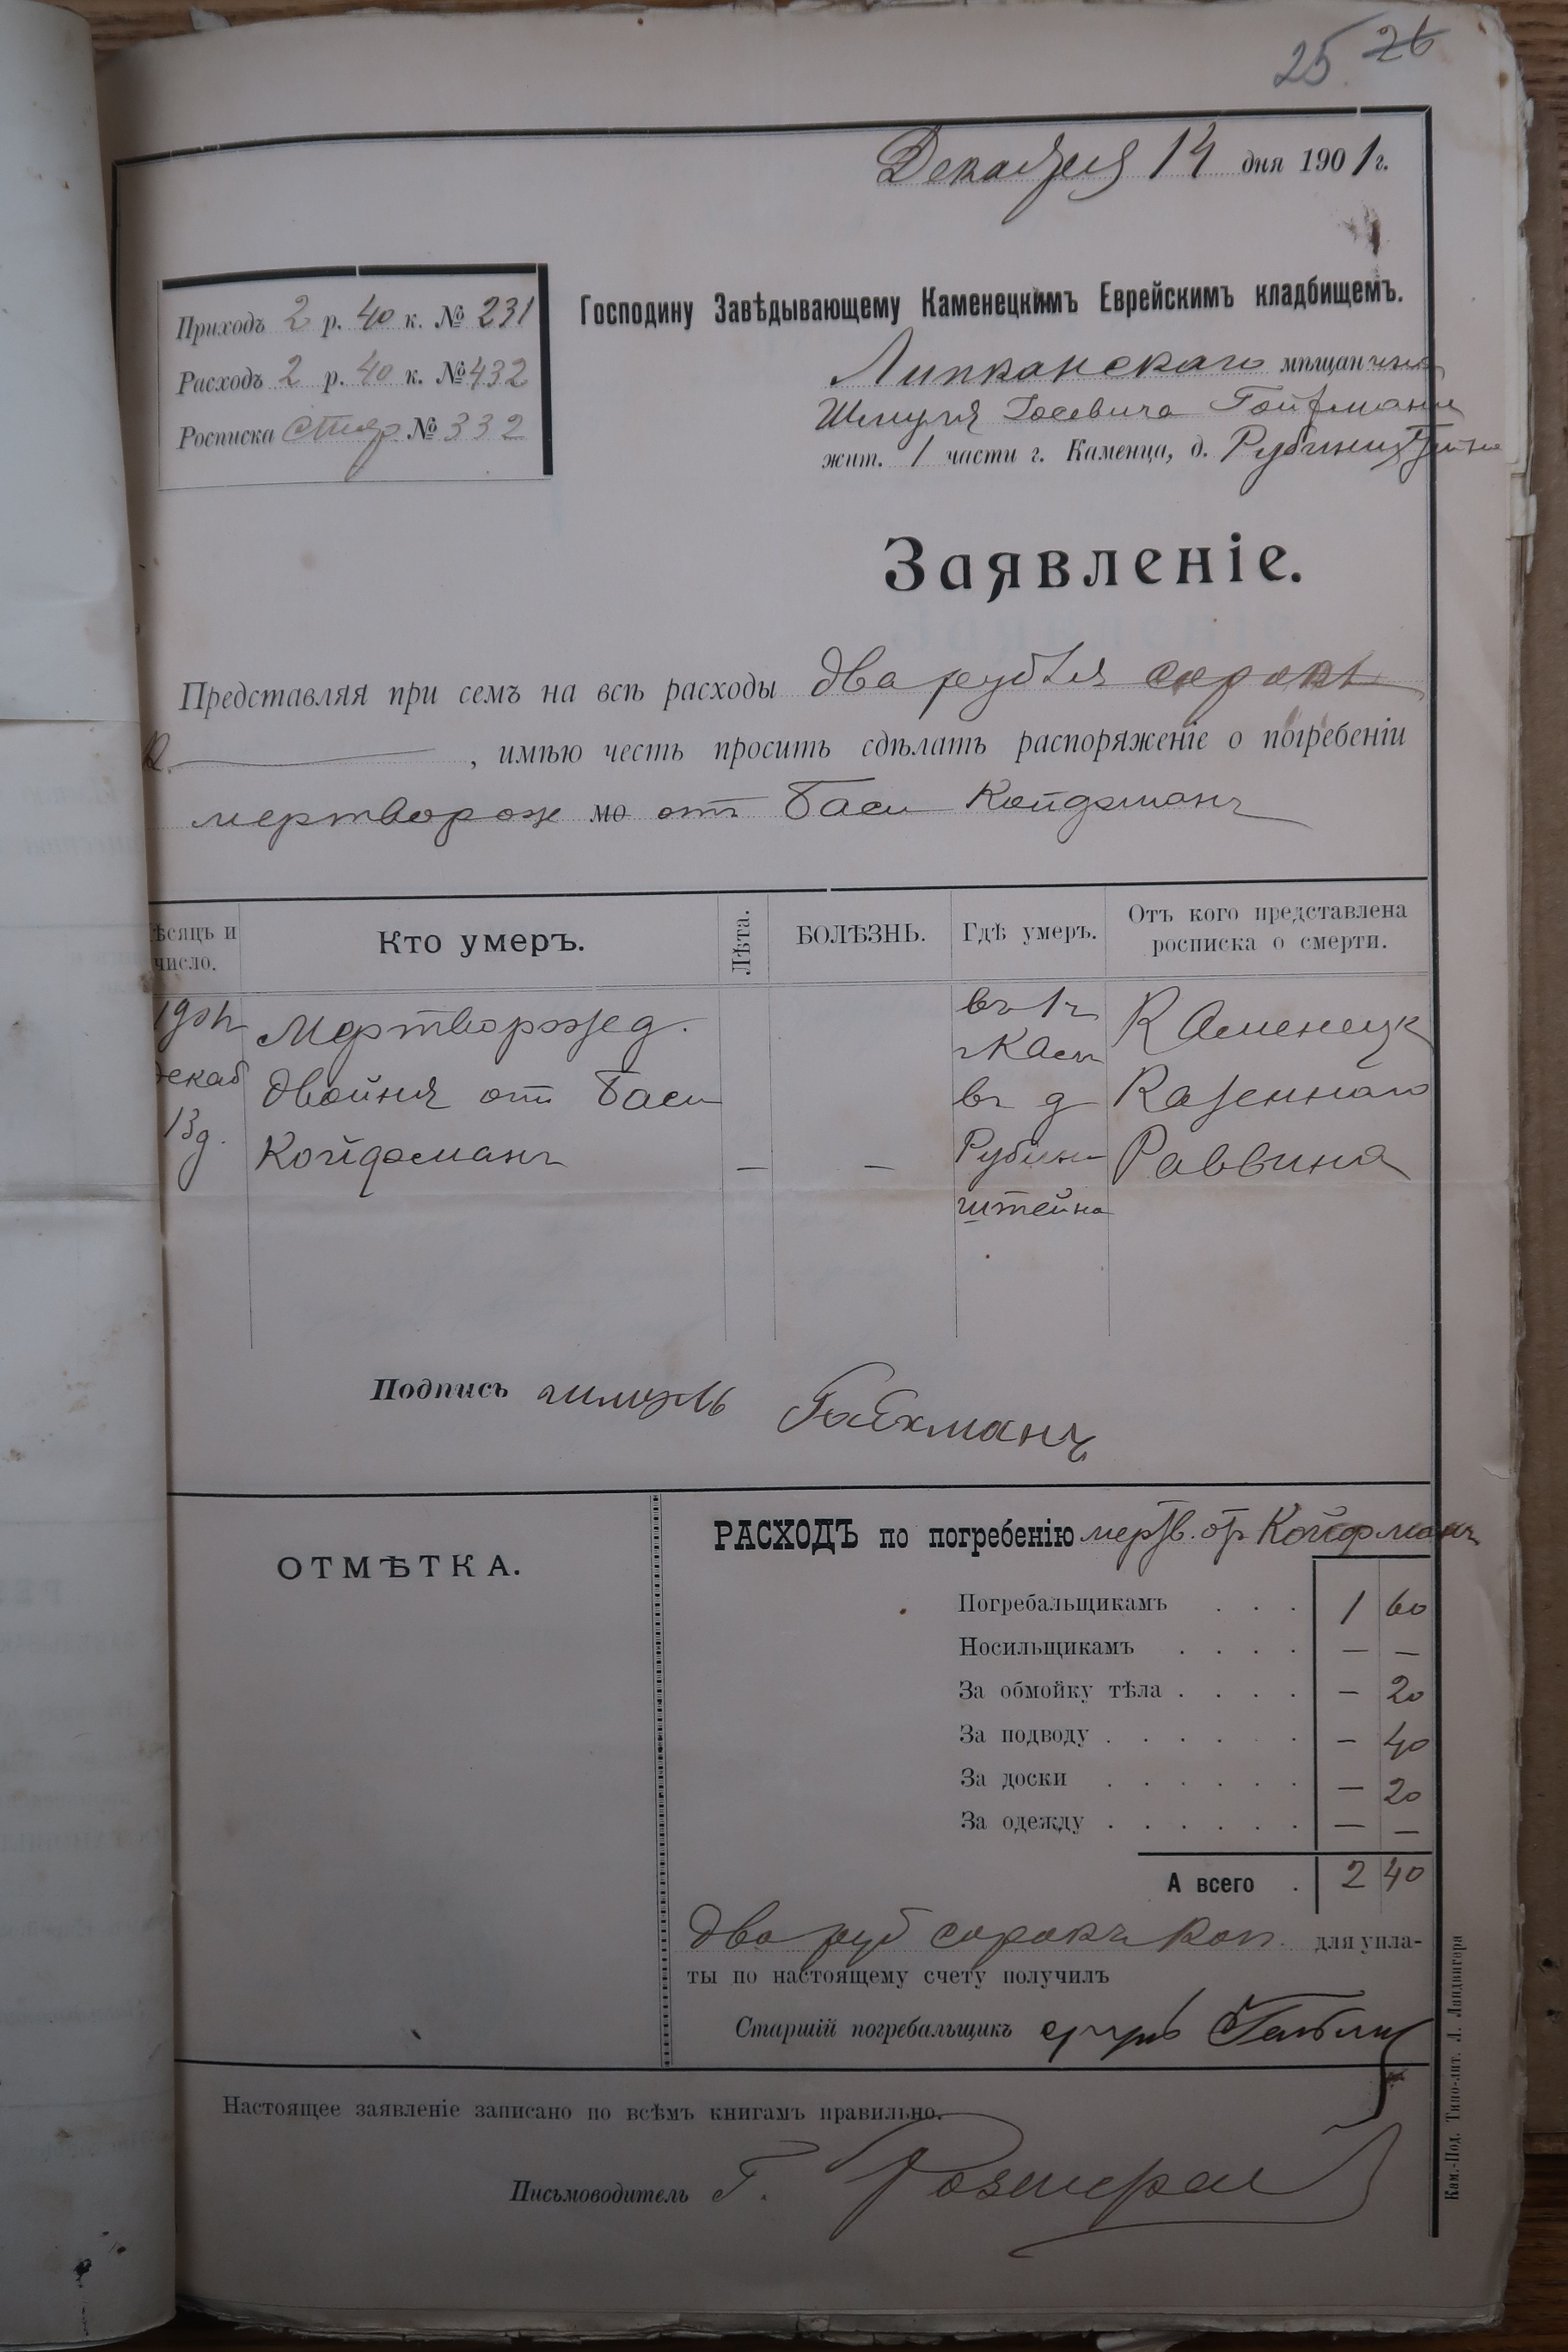 25 26
Декабря 14 дня 1901 г.
Приходъ 2 р. 40 к. № 231
Расходъ 2 р. 40 к. № 432
Росписка № 332
Господину Завѣдывающему Каменецкимъ Еврейскимъ кладбищемъ.
Липканскаго мѣщанина
Шмуля Іосевича Гойхмана
жит. 1 части г. Каменца, д. Рубинштейна
Заявленіе.
Представляя при семъ на всѣ расходы два рубля сорокъ
к. , имѣю честь просить сдѣлать распоряженіе о погребеніи
мертворож мо отъ Баси Койфманъ
Мѣсяцъ и число.
Кто умеръ.
Лѣта.
БОЛѢЗНЬ.
Гдѣ умеръ.
Отъ кого представлена
росписка о смерти.
декаб
13 д.
Мертворожед.
двойня отъ Баси
Койфманъ
—
—
въ 1 ч
г Кам
въ д
Рубин-
штейна
Каменецк
Казеннаго
Раввина
Подпись шмуль Гойхманъ
ОТМѢТКА.
РАСХОДЪ по погребенію мертв. от Койфманъ
Погребальщикамъ . . . 1 60
Носильщикамъ . . . . — —
За обмойку тѣла . . . . — 20
За подводу . . . . . . — 40
За доски . . . . . . — 20
За одежду . . . . . . — —
А всего . 2 40
Два руб сорокъ коп. для упла-
ты по настоящему счету получилъ
Старшій погребальщикъ
Настоящее заявленіе записано по всѣмъ книгамъ правильно.
Письмоводитель Г.
Кам.-Под. Типо-лит. Л. Ландвигера